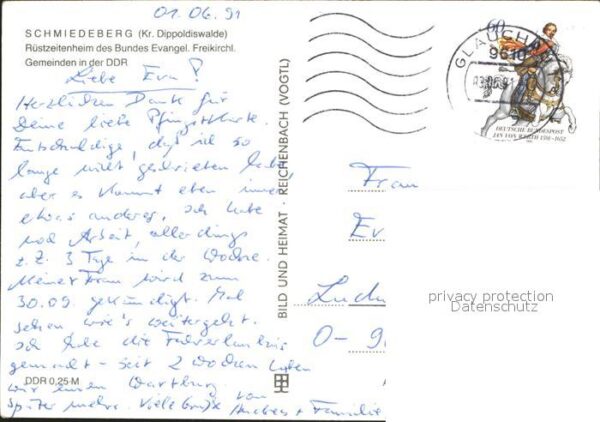 01.06.91
SCHMIEDEBERG (Kr. Dippoldiswalde)
Rüstzeitenheim des Bundes Evangel. Freikirchl.
Gemeinden in der DDR
Liebe Eva!
Herzlichen Dank für
Deine liebe Pfingstkarte.
Entschuldige, daß ich so
lange nicht geschrieben habe,
aber es kommt eben immer
etwas anderes. Ich habe
noch Arbeit, allerdings
z.Z. 3 Tage in der Woche.
Meine Frau wird zum
30.09. gekündigt. Mal
sehen wie's weitergeht.
Ich habe die Fahrerlaubnis
gemacht - seit 2 Wochen haben
wir einen Wartburg
später mehr. Viele Grüße von
+ Familie
DDR 0,25 M
BILD UND HEIMAT · REICHENBACH (VOGTL)
60
GLAUCHAU
9610
DEUTSCHE BUNDESPOST
JAN VON WERTH 1591-1652
Frau
Ev
Ludw
O-9
privacy protection
Datenschutz